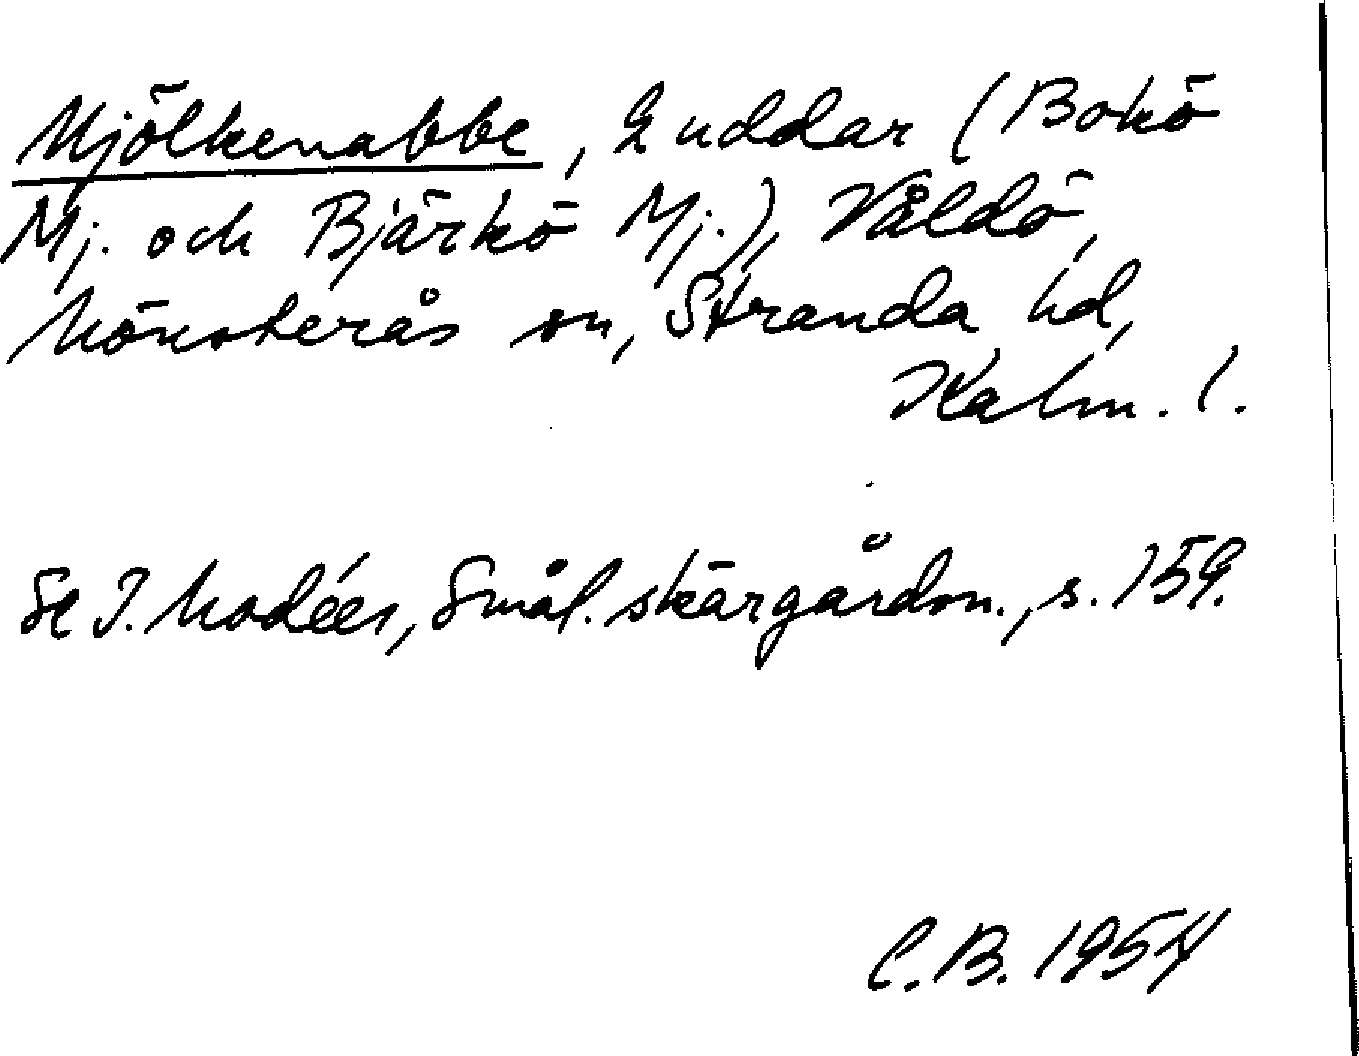 Mjölkenabbe, 2 uddar (Bokö
Mj. och Björkö Mj.), Våldö,
Mönsterås sn, Stranda hd,
Kalm. l.
Se I. Modéer, Smål. skärgårdsn., s. 159.
C.B. 1954